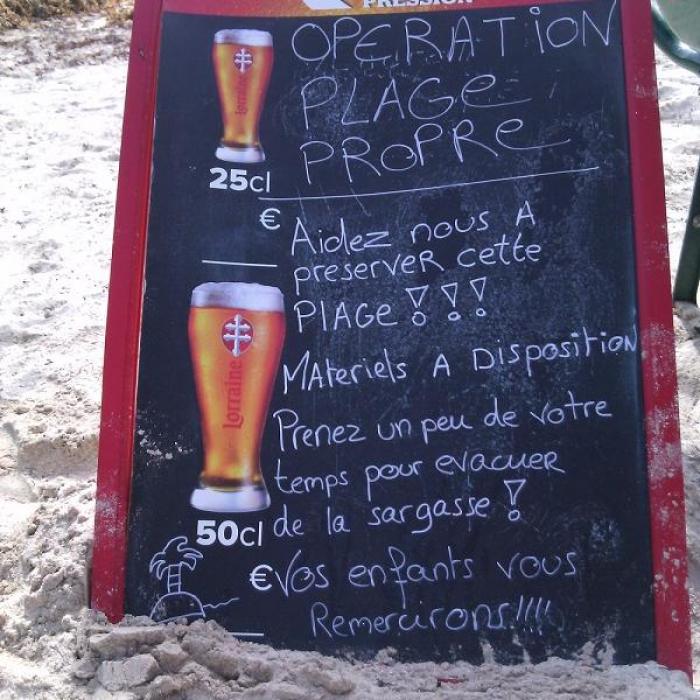 PRESSION
OPERATION
PLAGE
PROPRE
25cl
€
Aidez nous A
preserver cette
PlAGE !!!
Lorraine
MAteriels A Disposition
Prenez un peu de votre
temps pour evacuer
de la sargasse !
50cl
€
Vos enfants vous
Remercirons!!!!
Lorraine